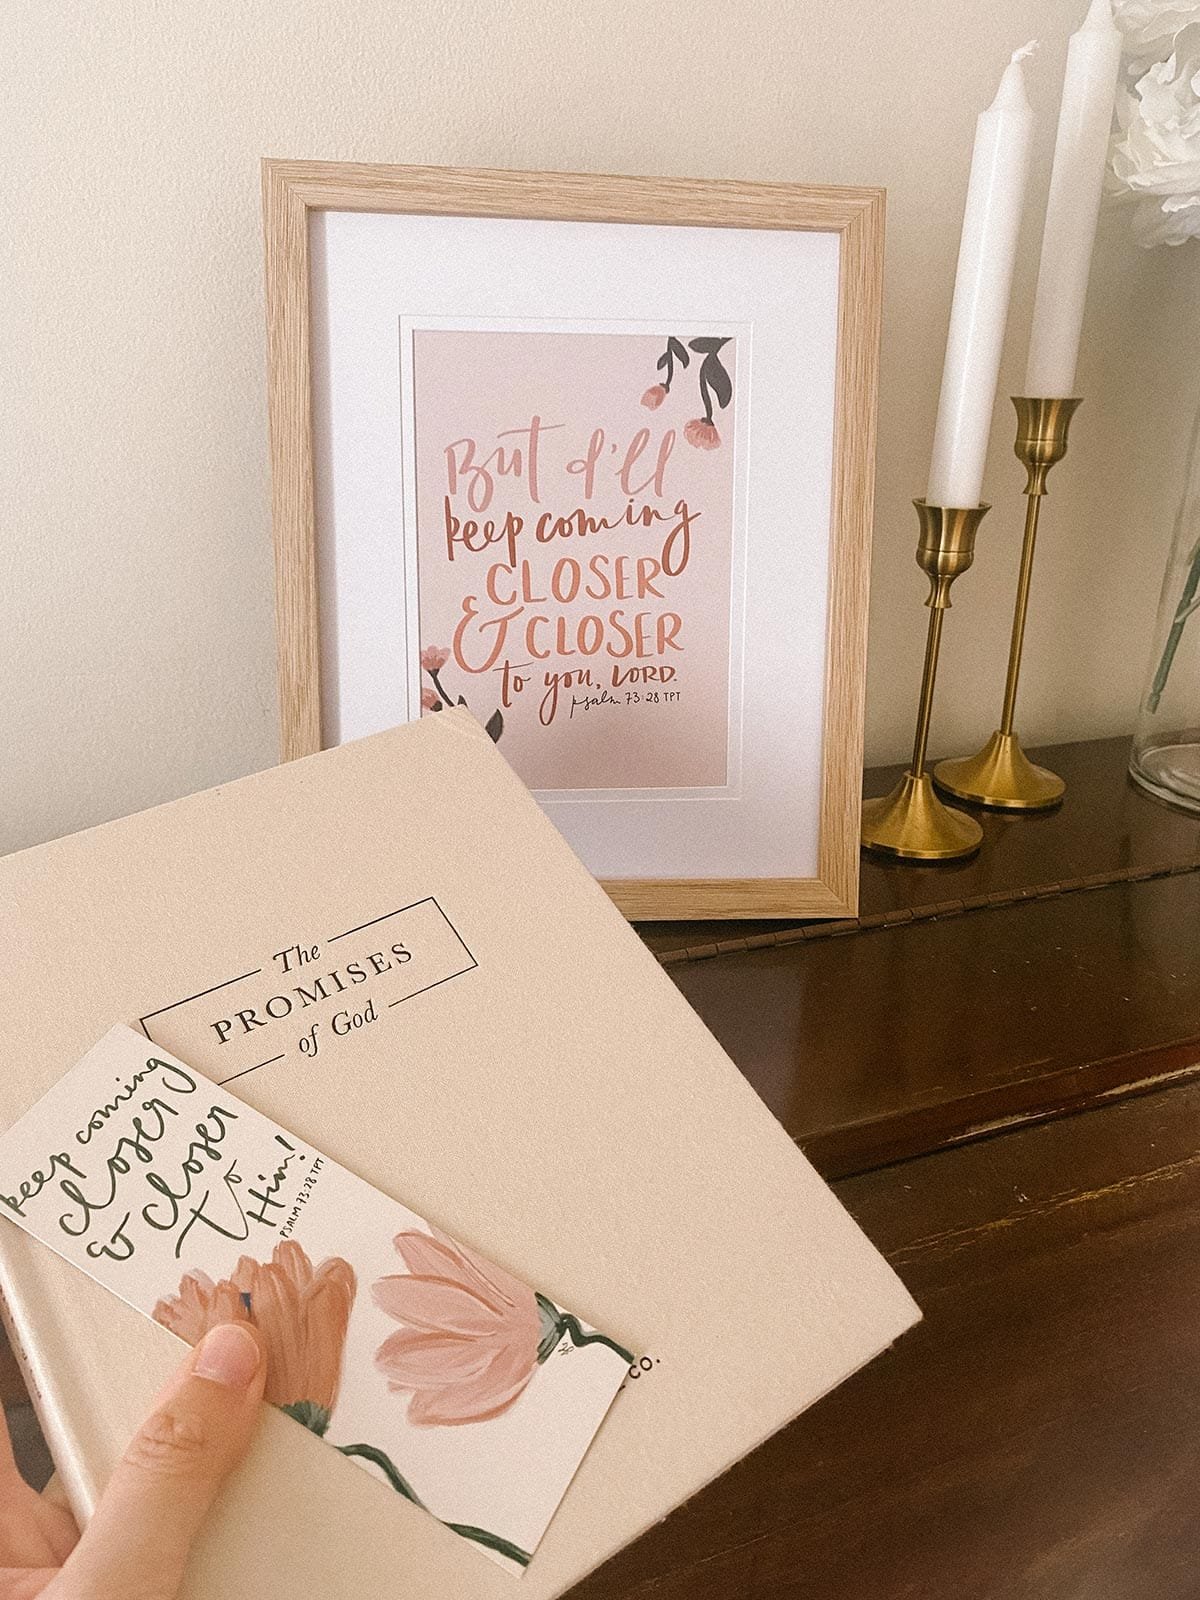 But I'll
keep coming
CLOSER
& CLOSER
to you, LORD.
psalm 73:28 TPT
The
PROMISES
of God
keep coming
closer
& closer
to
Him!
PSALM 73:28 TPT
CO.